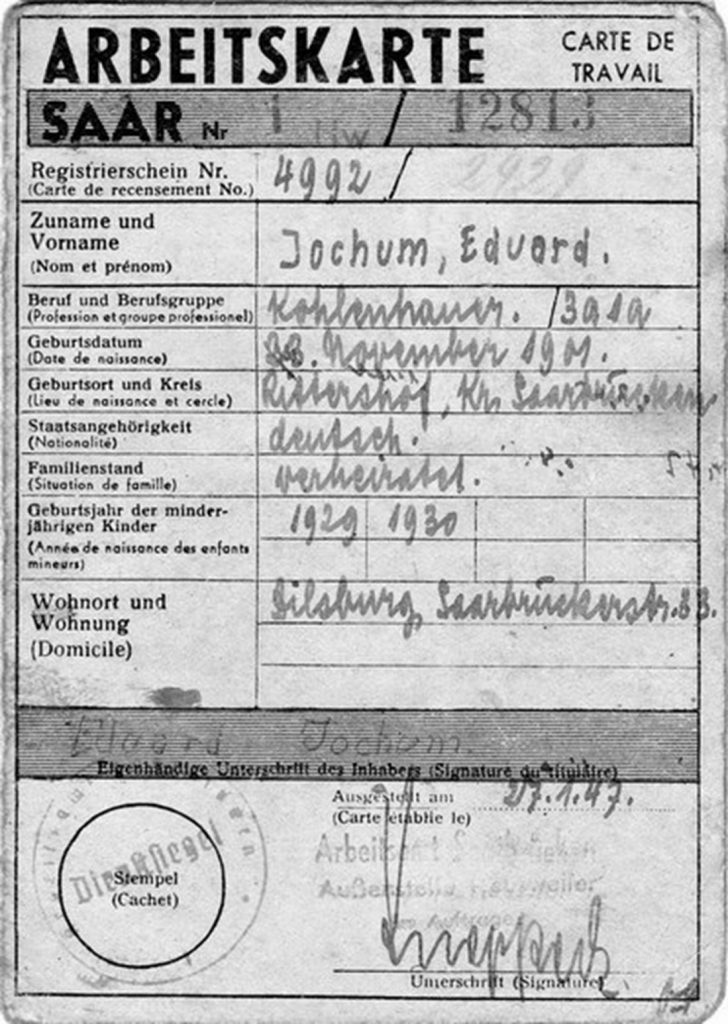 ARBEITSKARTE
CARTE DE
TRAVAIL
SAAR Nr 1 / 12813
Registrierschein Nr. 4992 /
(Carte de recensement No.)
Zuname und
Vorname
(Nom et prénom)
Jochum, Eduard.
Beruf und Berufsgruppe
(Profession et groupe professionel)
Kohlenhauer. /3a1a
Geburtsdatum
(Date de naissance)
November 1901.
Geburtsort und Kreis
(Lieu de naissance et cercle)
Rittershof, Kr. Saarbrücken
Staatsangehörigkeit
(Nationalité)
deutsch.
Familienstand
(Situation de famille)
verheiratet.
Geburtsjahr der minder-
jährigen Kinder
(Année de naissance des enfants
mineurs)
1929 1930
Wohnort und
Wohnung
(Domicile)
Dilsburg, Saarbrückerstr. 33.
Eduard Jochum.
Eigenhändige Unterschrift des Inhabers (Signature du titulaire)
Ausgestellt am 27.1.47.
(Carte établie le)
Dienstsiegel
Stempel
(Cachet)
Unterschrift (Signature)